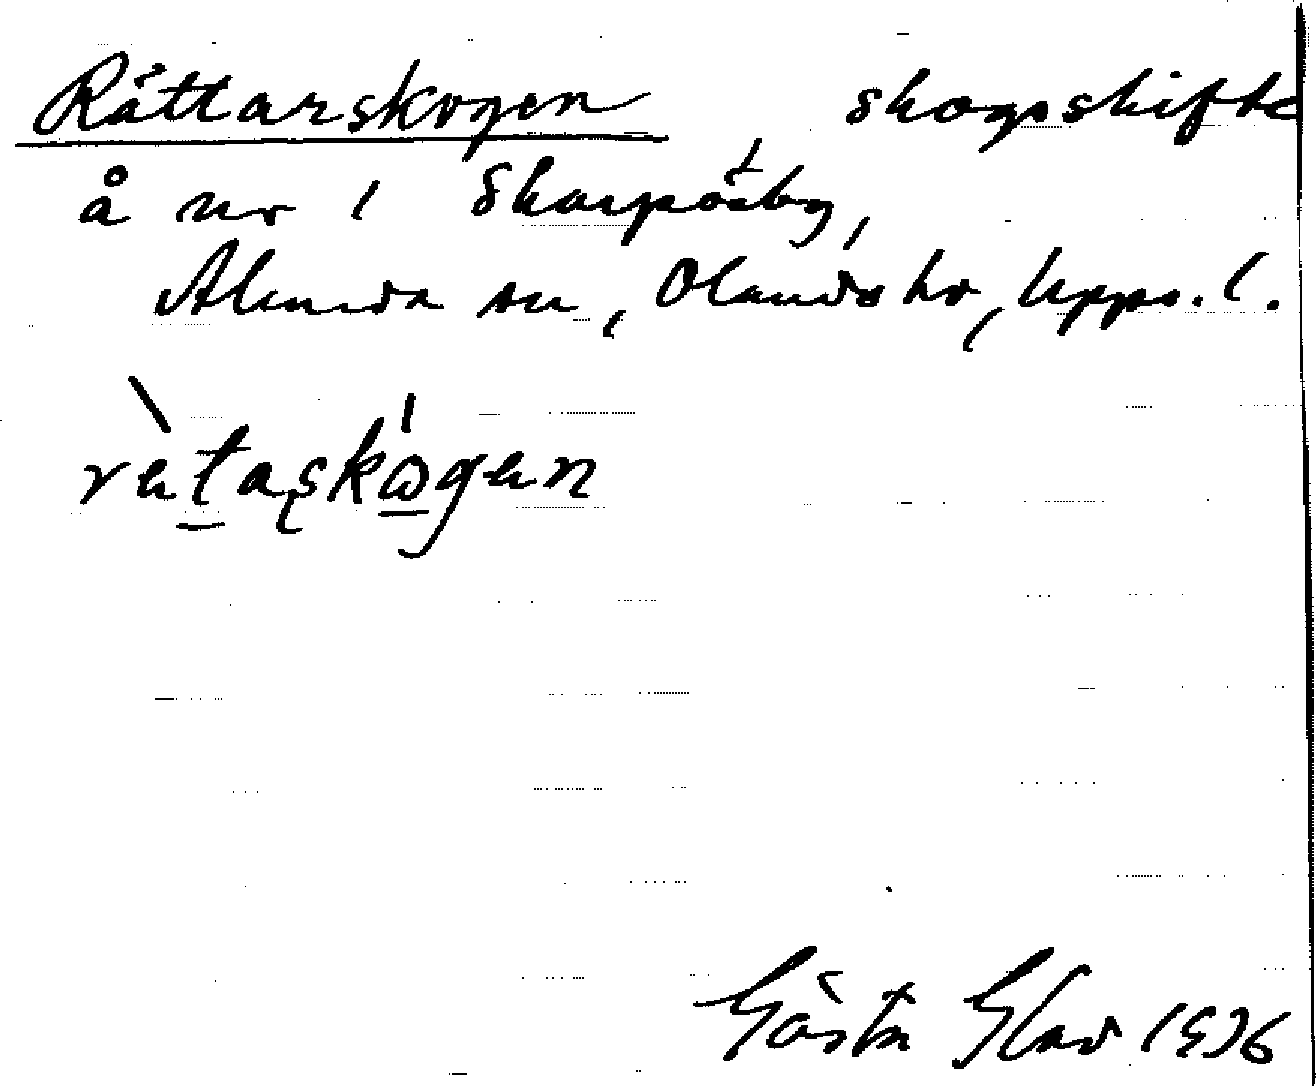 Rättarskogen, skogsskifte
å nr 1 Skarpösby,
Alunda sn, Olands hr, Upps. l.
rätaskωgen
Gösta Glad 1936